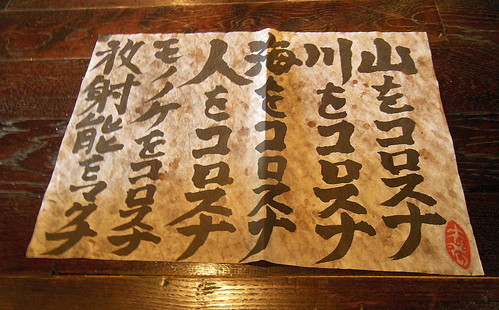 山をコロスナ
川をコロスナ
海をコロスナ
人をコロスナ
モノノケをコロスナ
放射能をマクナ